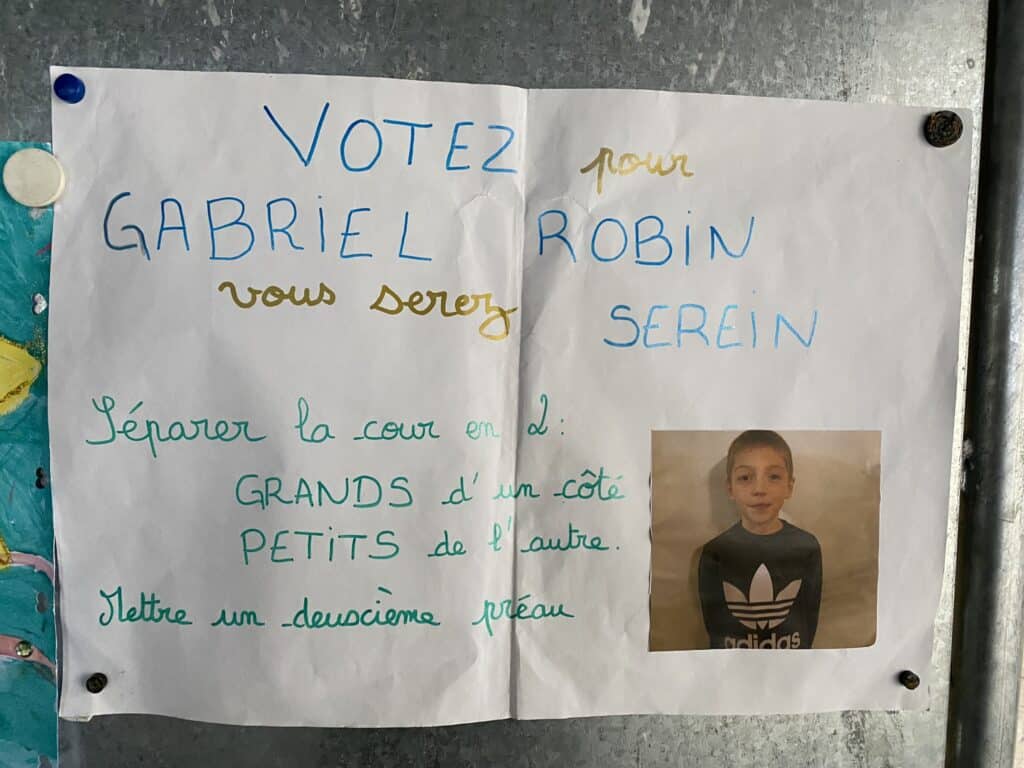 VOTEZ pour
GABRIEL ROBIN
vous serez SEREIN
Séparer la cour en 2:
GRANDS d'un côté
PETITS de l'autre.
Mettre un deuxième préau
adidas